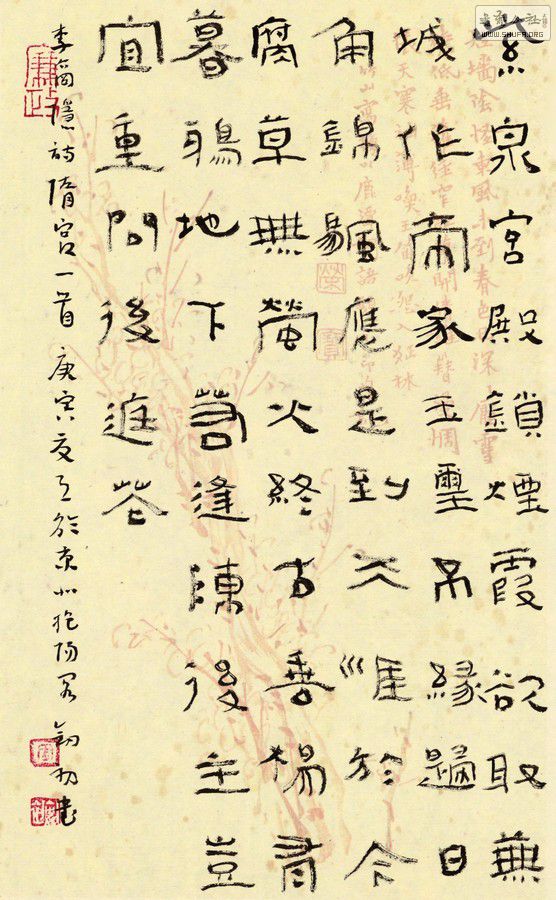 紫泉宮殿鎖煙霞欲取蕪
城作帝家玉璽不緣歸日
角錦颿應是到天涯於今
腐草無螢火終古垂楊有
暮鴉地下若逢陳後主豈
宜重問後庭花
李商隱詩隋宮一首 庚寅夏月於京北抱陽居
WWW.SHUFA.ORG